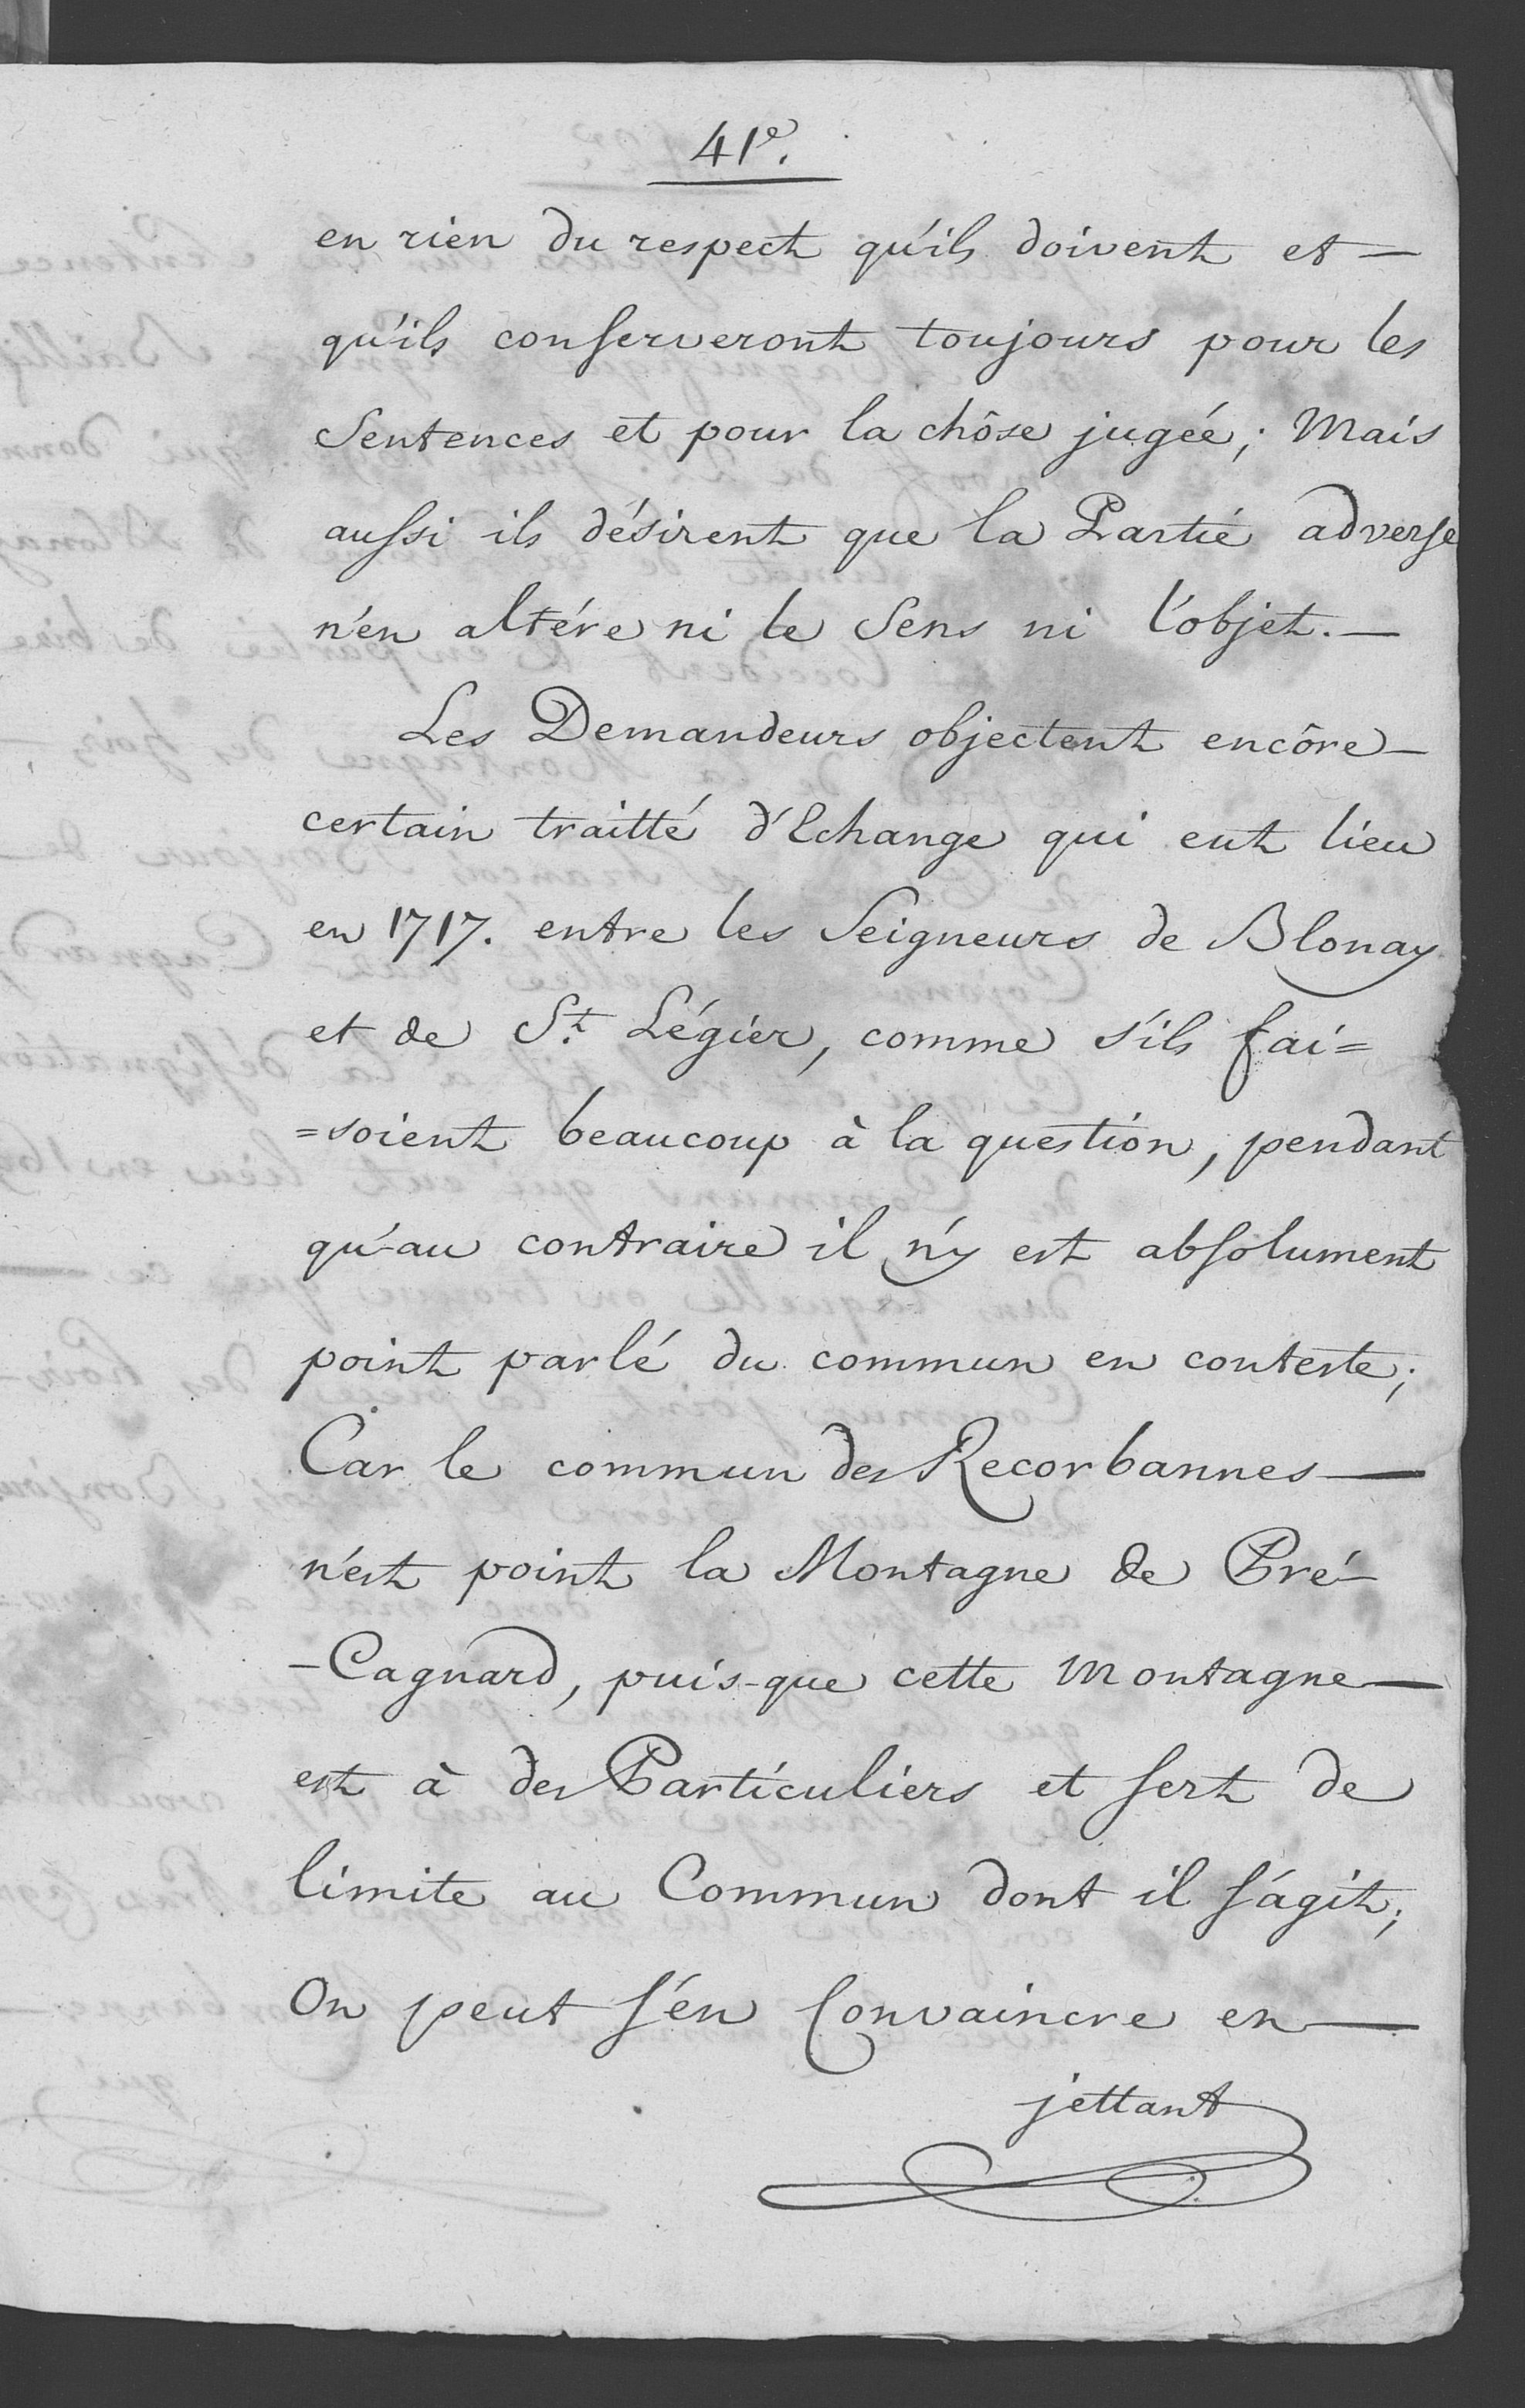 41e.
en rien du respect qu'ils doivent et —
qu'ils conserveront toujours pour les
Sentences et pour la chôse jugéé; Mais
aussi ils désirent que la Partié adverse
n'en altére ni le Sens ni l'objet. —
Les Demandeurs objectent encôre —
certain traitté d'Echange qui eut lieu
en 1717. entre les Seigneurs de Blonay
et de St. Légier, comme s'ils fai=
=soient beaucoup à la question, pendant
qu'au contraire il n'y est absolument
point parlé du commun en conteste;
Car le commun des Recorbannes —
n'est point la Montagne de Pré-
-Cagnard, puis-que cette Montagne —
est à des Particuliers et sert de
limite au Commun dont il s'agit;
On peut s'en Convaincre en —
jettant